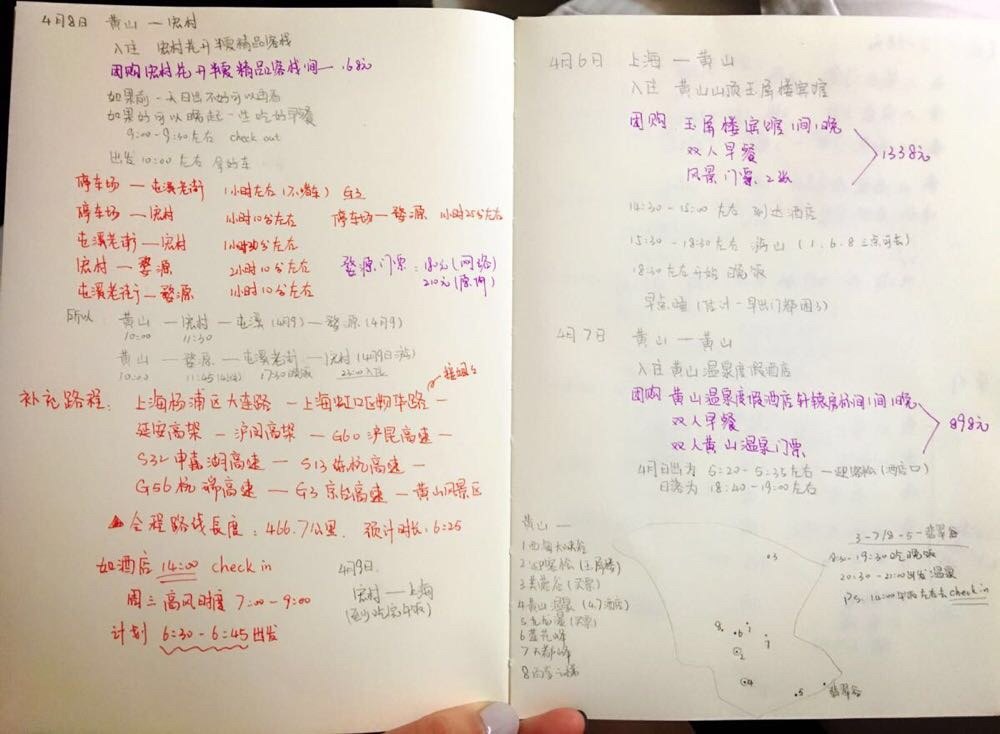 4月8日 黄山 — 宏村
入住 宏村花开半夏精品客栈
团购 宏村花开半夏精品客栈 间— 168元
如果前一天日出不好可以再看
如果好可以晚起一些吃的早餐
9:00-9:30左右 check out
出发 10:00 左右 拿的车
停车场 — 屯溪老街 1小时左右(不堵车) G3
停车场 — 宏村 1小时10分左右 停车场 — 婺源 1小时25分左右
屯溪老街 — 宏村 1小时30分左右
宏村 — 婺源 2小时10分左右 婺源门票:180元(网络)
屯溪老街 — 婺源 1小时10分左右 210元(原价)
所以 黄山 — 宏村 — 屯溪(4月9) — 婺源(4月9)
10:00 11:30
黄山 — 婺源 — 屯溪老街 — 宏村(4月9日游)
10:00 11:45 17:30晚饭 23:00入住
补充路程: 上海杨浦区大连路 — 上海虹口区物华路 —
延安高架 — 沪闵高架 — G60 沪昆高速 —
S32 申嘉湖高速 — S13 练杭高速 —
G56 杭瑞高速 — G3 京台高速 — 黄山风景区
全程路线长度:466.7公里. 预计时长:6:25
如酒店 14:00 check in
周三高风时度 7:00-9:00
计划 6:30-6:45出发
4月9日.
宏村 — 上海
4月6日 上海 — 黄山
入住 黄山山顶玉屏楼宾馆
团购 玉屏楼宾馆 1间1晚
双人早餐
风景门票 2张
1338元
14:30-15:00 左右 到达酒店
15:30-18:30左右 游山 (1.6.8三点可去)
18:30左右开始 晚饭
早点睡 (估计一早出门都困了)
4月7日 黄山 — 黄山
入住 黄山温泉度假酒店
团购 黄山温泉度假酒店轩辕房标间1间1晚
双人早餐
双人黄山温泉门票
898元
4月日出为 5:20-5:25左右 — 迎客松(酒店口)
日落为 18:40-19:00左右
黄山 —
1西海大峡谷
2迎客松(玉屏楼)
3芙蓉谷(买票)
4黄山温泉(4.7酒店)
5九龙瀑(买票)
6莲花峰
7天都峰
8百步云梯
3-7/8-5-翡翠谷
8:30-19:30吃晚饭
20:30-21:00出发温泉
Ps. 14:00午饭左右去check in
3
8
6
1
7
2
4
5
翡翠谷